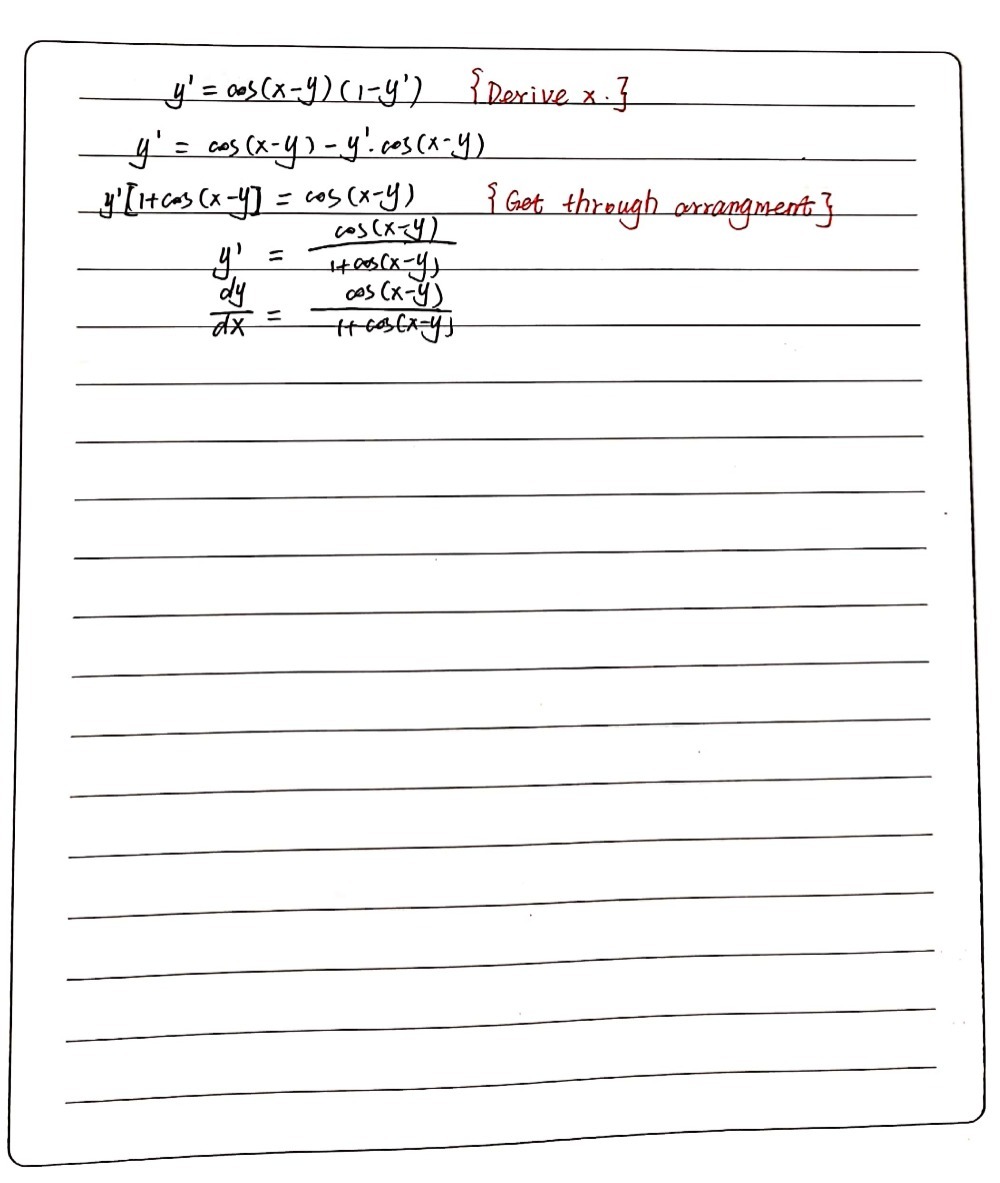 y' = cos(x-y)(1-y') {Derive x.}
y' = cos(x-y) - y'.cos(x-y)
y'[1+cos(x-y] = cos(x-y) {Get through arrangment}
y' = \frac{cos(x-y)}{1+cos(x-y)}
\frac{dy}{dx} = \frac{cos(x-y)}{1+cos(x-y)}